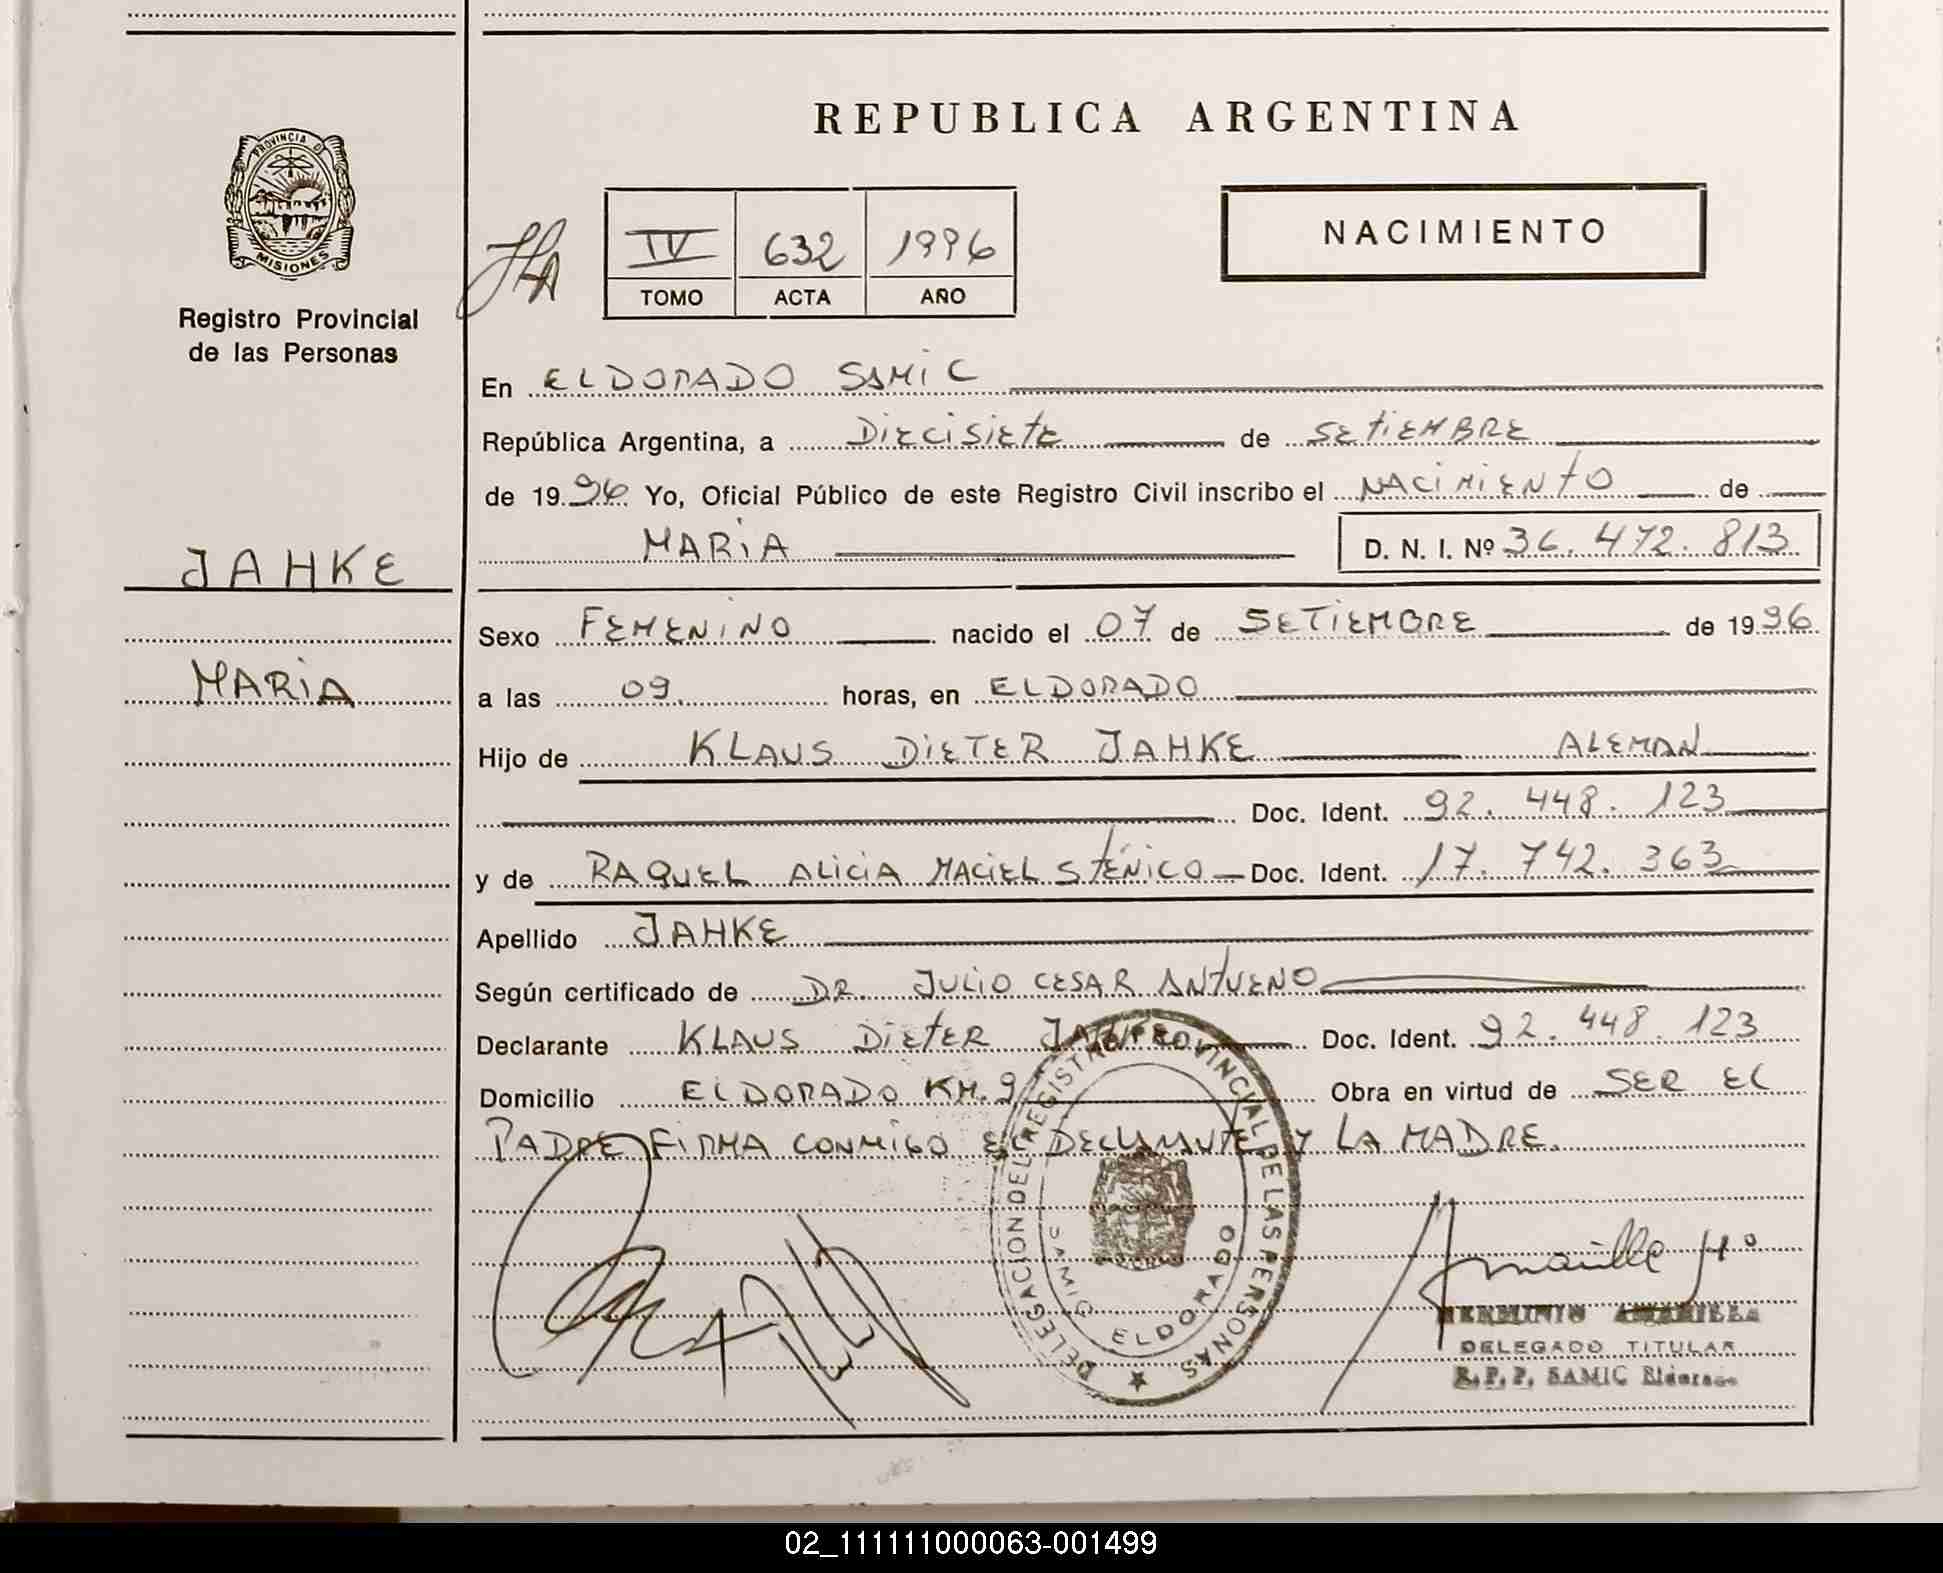 REPUBLICA ARGENTINA
PROVINCIA D
MISIONES
Registro Provincial
de las Personas
IV 632 1996
TOMO ACTA AÑO
NACIMIENTO
En ELDORADO SAMIC
República Argentina, a DIECISIETE de SETIEMBRE
de 1996 Yo, Oficial Público de este Registro Civil inscribo el NACIMIENTO de
MARIA D. N. I. Nº 36.472.813
JAHKE
MARIA
Sexo FEMENINO nacido el 07 de SETIEMBRE de 1996
a las 09. horas, en ELDORADO
Hijo de KLAUS DIETER JAHKE ALEMAN
Doc. Ident. 92.448.123
y de RAQUEL ALICIA MACIEL STÉNICO Doc. Ident. 17.742.363
Apellido JAHKE
Según certificado de DR. JULIO CESAR ANTUENO
Declarante KLAUS DIETER JAHKE Doc. Ident. 92.448.123
Domicilio ELDORADO KM.9 Obra en virtud de SER EL
PADRE FIRMA CONMIGO EL DECLARANTE Y LA MADRE.
DELEGACION DEL REGISTRO PROVINCIAL DE LAS PERSONAS
SAMIC ELDORADO
HERMINIO AMARILLA
DELEGADO TITULAR
R.P.P. SAMIC Eldorado
02_111111000063-001499